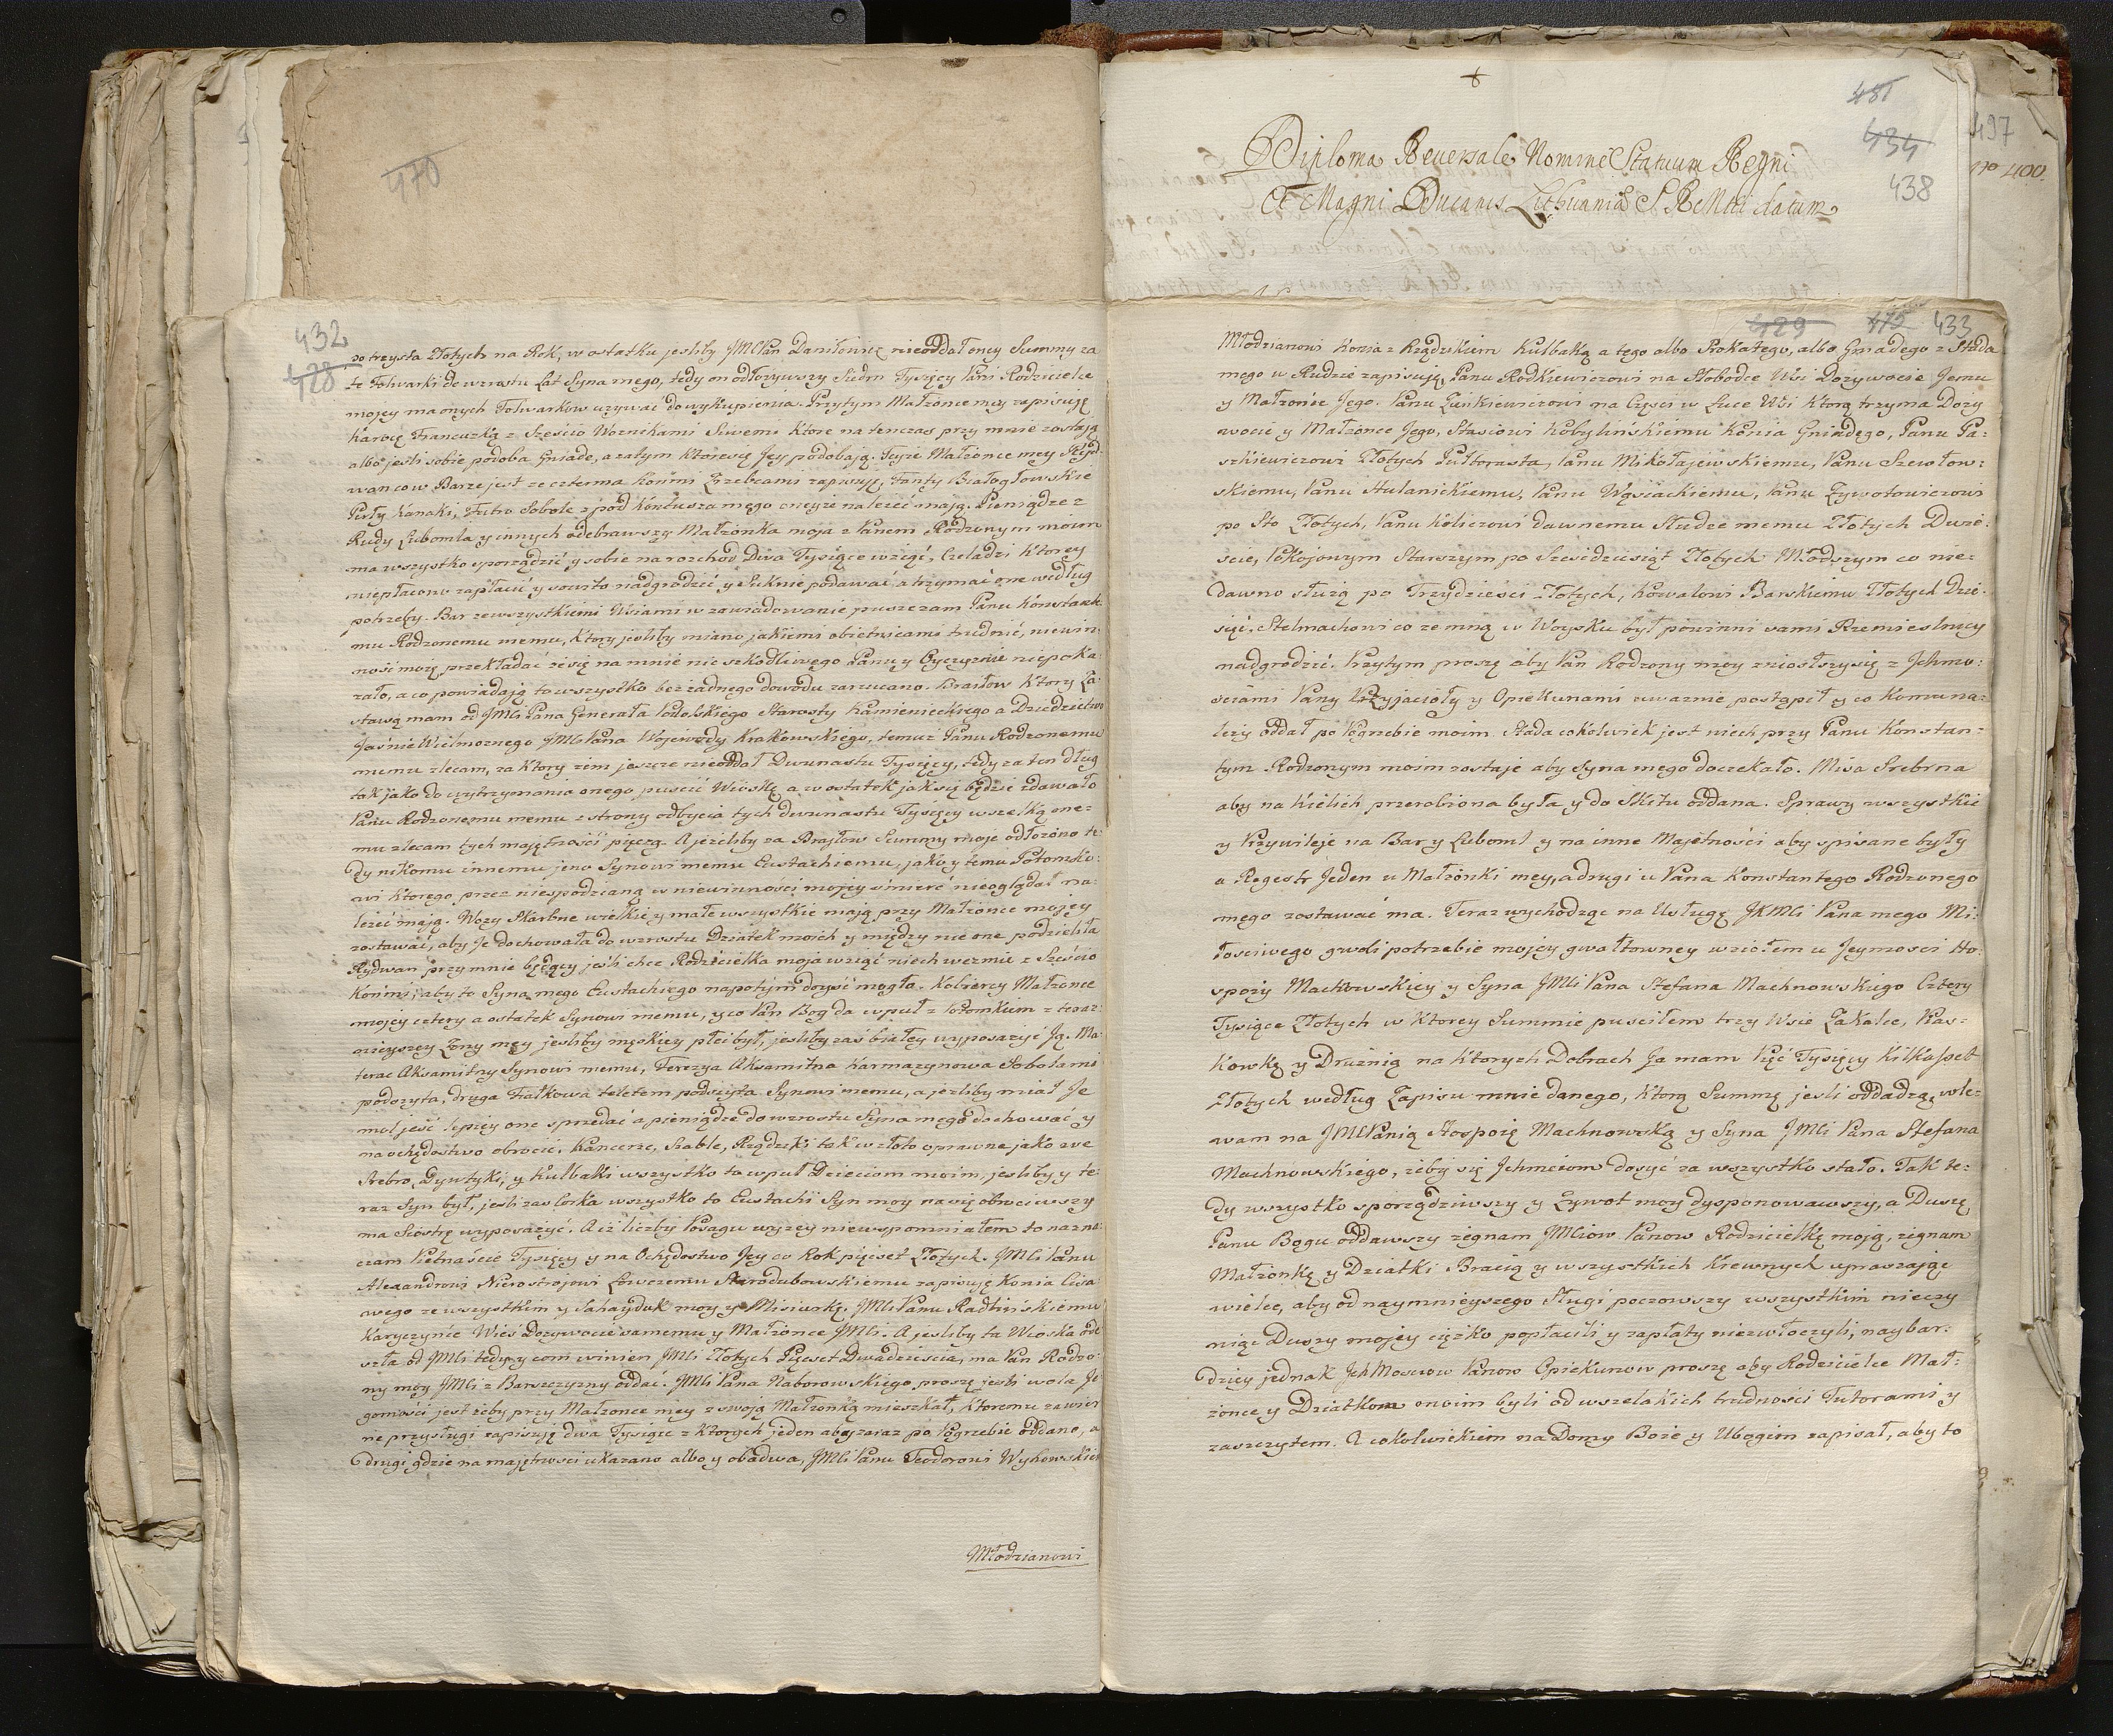 470
Diploma Reversale Nomine Statuum Regni
Et Magni Ducatus Lithuaniæ S. R. Mtti datum
481
434
438
497
no 400.
432
428
po trzysta Złotych na Rok, w ostatku jesliby JMCPan Daniłowicz nieoddał oney Summy za
te Folwarki do wzrostu Lat Syna mego, tedy on odłożywszy Siedm Tysięcy Pani Rodzicielce
mojey ma onych Folwarkow używać do wykupienia. Przytym Małżonce mey zapisuję
Karocę Francuzką z Sześcio Woznikami Siwemi które na tenczas przy mnie zostają
albo jeśli sobie podoba Gniade, a zatym które się Jey podobają. Teyże Małżonce mey
wancow Barze jest ze czterma Końmi Zrzebcami zapisuję, Fanty Białogłowskie
Perły Kanaki, Futro Sobole z pod Kontusza mego oneyże należeć mają. Pieniądze z
Rudy Lubomla y innych odebrawszy Małżonka moja z Panem Rodzonym moim
ma wszystko sporządzić y sobie na rozchod Dwa Tysiące wziąć, Czeladzi Ktorey
niepłacono zapłacić y sowito nadgrodzić y Suknie podawać, a trzymać one według
potrzeby. Bar zewszystkiemi Wsiami w zawiadowanie puszczam Panu Konstante
mu Rodzonemu memu, Ktory jesliby miano jakiemi obietnicami trudnić, niewin
ność moję przekładać że się na mnie nic szkodliwego Panu y Oyczyznie niepoka:
zało, a co powiadają to wszystko bez żadnego dowodu zarzucano. Braiłow Ktory Za:
stawą mam od JMCi Pana Generała Podolskiego Starosty Kamienieckiego a Dziedzictwo
Jaśnie Wielmożnego JMCi Pana Wojewody Krakowskiego, temuż Panu Rodzonemu
memu zlecam, za Ktory żem jeszcze nieoddał Dwunastu Tysięcy, tedy za ten dług
tak jako do wytrzymania onego puścić Wioskę a w ostatek jak się będzie zdawało
Panu Rodzonemu memu z strony odbycia tych dwunastu Tysięcy wszelką one:
mu zlecam tych majętności pieczą. A jeżeliby za Braiłow Summy moje odłożono te:
dy nikomu innemu jeno Synowi memu Eustachiemu, jako y temu Potomko:
wi Ktorego przez niespodzianą w niewinności mojey śmierć nieoglądał na:
leżeć mają. Wozy Skarbne wielkie y małe wszystkie mają przy Małżonce mojey
zostawać, aby Je dochowała do wzrostu Dziatek moich y między nie one podzieliła
Rydwan przy mnie będący jeśli chce Rodzicielka moja wziąć niech wezmie z Sześcio
Końmi, aby to Syna mego Eustachiego napotym doyść mogło. Kobiercy Małżonce
mojey cztery a ostatek Synowi memu, y co Pan Bog da wpuł z Potomkiem z teraz:
nieyszey Żony mey jesliby męskiey płci był, jesliby zaś białey wyposażyć Ją. Ma
terac Aksamitny Synowi memu, Ferezya Aksamitna Karmazynowa Sobolami
podszyta, druga Fiałkowa teletem podszyta Synowi memu, a jeżliby miał Je
mol jeść lepiey one sprzedać a pieniądze do wzrostu Syna mego dochować y
na ochędostwo obrocić. Kancerze, Szable, Rządziki tak w złoto oprawne jako we
Srebro, Dywtyki, y Kulbaki wszystko to wpuł Dzieciom moim, jesliby y te:
raz Syn był, jesli zas Corka wszystko to Eustachii Syn moy na się obrociwszy
ma Siostrę wyposażyć. A iż liczby Posagu wyżey niewspomniałem to nazna:
czam Piętnaście Tysięcy y na Ochędostwo Jey co Rok pięćset Złotych. JMCi Panu
Alexandrowi Nicostrojowi Łowczemu Starodubowskiemu zapisuję Konia Cisa
wego ze wszystkim y Sahaydak moy y Misiurkę. JMCi Panu Radlińskiemu
Karyczyńce Wieś Dożywocie samemu y Małżonce JMCi. A jesliby ta Wioska ode
szła od JMCi tedy y com winien JMCi Złotych Pięćset Dwadzieścia, ma Pan Rodzo:
ny moy JMCi z Barszczyzny oddać. JMCi Pana Naborowskiego proszę jesli wola Je
gomości jest żeby przy Małżonce mey z swoją Małżonką mieszkał, Ktoremu za wier
ne przysługi zapisuję dwa Tysiące z Ktorych jeden aby zaraz po Pogrzebie oddano, a
drugi gdzie na majętności ukazano albo y obadwa, JMCi Panu Teodorowi Wyhowskie
Młodzianowi
429
475
433
Młodzianowi Konia z Rządzikiem Kulbaką a tego albo Srokatego, albo Gniadego z Stada
mego w Rudzie zapisuję, Panu Rodkiewiczowi na Słobodce Wsi Dożywocie Jemu
y Małżonce Jego. Panu Żunkiewiczowi na Części w Łuce Wsi Ktorą trzyma Doży
wocie y Małżonce Jego, Stasiowi Kobylińskiemu Konia Gniadego, Panu Pa:
szkiewiczowi Złotych Pułtorasta, Panu Mikołajewskiemu, Panu Szewłow:
skiemu, Panu Hulanickiemu, Panu Wąsiackiemu, Panu Żywotowiczowi
po Sto Złotych, Panu Koliczowi dawnemu Słudze memu Złotych Dwie:
ście, Pokojowym Starszym po Sześćdziesiąt Złotych Młodszym co nie:
dawno służą po Trzydzieści Złotych, Kowalowi Barskiemu Złotych Dzie:
sięć, Stelmachowi co ze mną w Woysku był powinni sami Rzemieslnicy
nadgrodzić. Przytym proszę aby Pan Rodzony moy zniosłszy się z Ichmo:
sciami Pany Przyjacioły y Opiekunami uważnie postąpił y co Komu na:
leży oddał po Pogrzebie moim. Stada cokolwiek jest niech przy Panu Konstan:
tym Rodzonym moim zostaje aby Syna mego doczekało. Misa Srebrna
aby na Kielich przerobiona była y do Skitu oddana. Sprawy wszystkie
y Przywileje na Bar y Luboml y na inne Majętności aby spisane były
a Regestr Jeden u Małżonki mey, a drugi u Pana Konstantego Rodzonego
mego zostawać ma. Teraz wychodząc na Usługę JKMCi Pana mego Mi:
łosciwego gwoli potrzebie mojey gwałtowney wziołem u Jeymosci Ho:
spoży Machnowskiey y Syna JMCi Pana Stefana Machnowskiego Cztery
Tysiące Złotych w Ktorey Summie puscilem trzy Wsie Zakalce, Kras:
kowkę y Drużnią na Ktorych Dobrach Ja mam Pięć Tysięcy Kilkaset
Złotych według Zapisu mnie danego, Ktorą Summę jesli oddadzą, wle:
wam na JMCPanią Hospożę Machnowską y Syna JMCi Pana Stefana
Machnowskiego, żeby się Ichmciom dosyć za wszystko stało. Tak te:
dy wszystko sporządziwszy y Żywot moy dysponowawszy, a Duszę
Panu Bogu oddawszy żegnam JMCiow Panow Rodzicielkę moją, żegnam
Małżonkę y Dziatki Bracią y wszystkich Krewnych upraszając
wielce, aby od naymnieyszego Sługi począwszy wszystkim nieczy
niąc Duszy mojey ciężko popłacili y zapłaty niezwłoczyli, naybar:
dziey jednak Ich Mosciow Panow Opiekunow proszę aby Rodzicielce Mał:
żonce y Dziatkom moim byli od wszelakich trudności Tutorami y
zaszczytem. A cokolwiekiem na Domy Boże y Ubogim zapisał, aby to